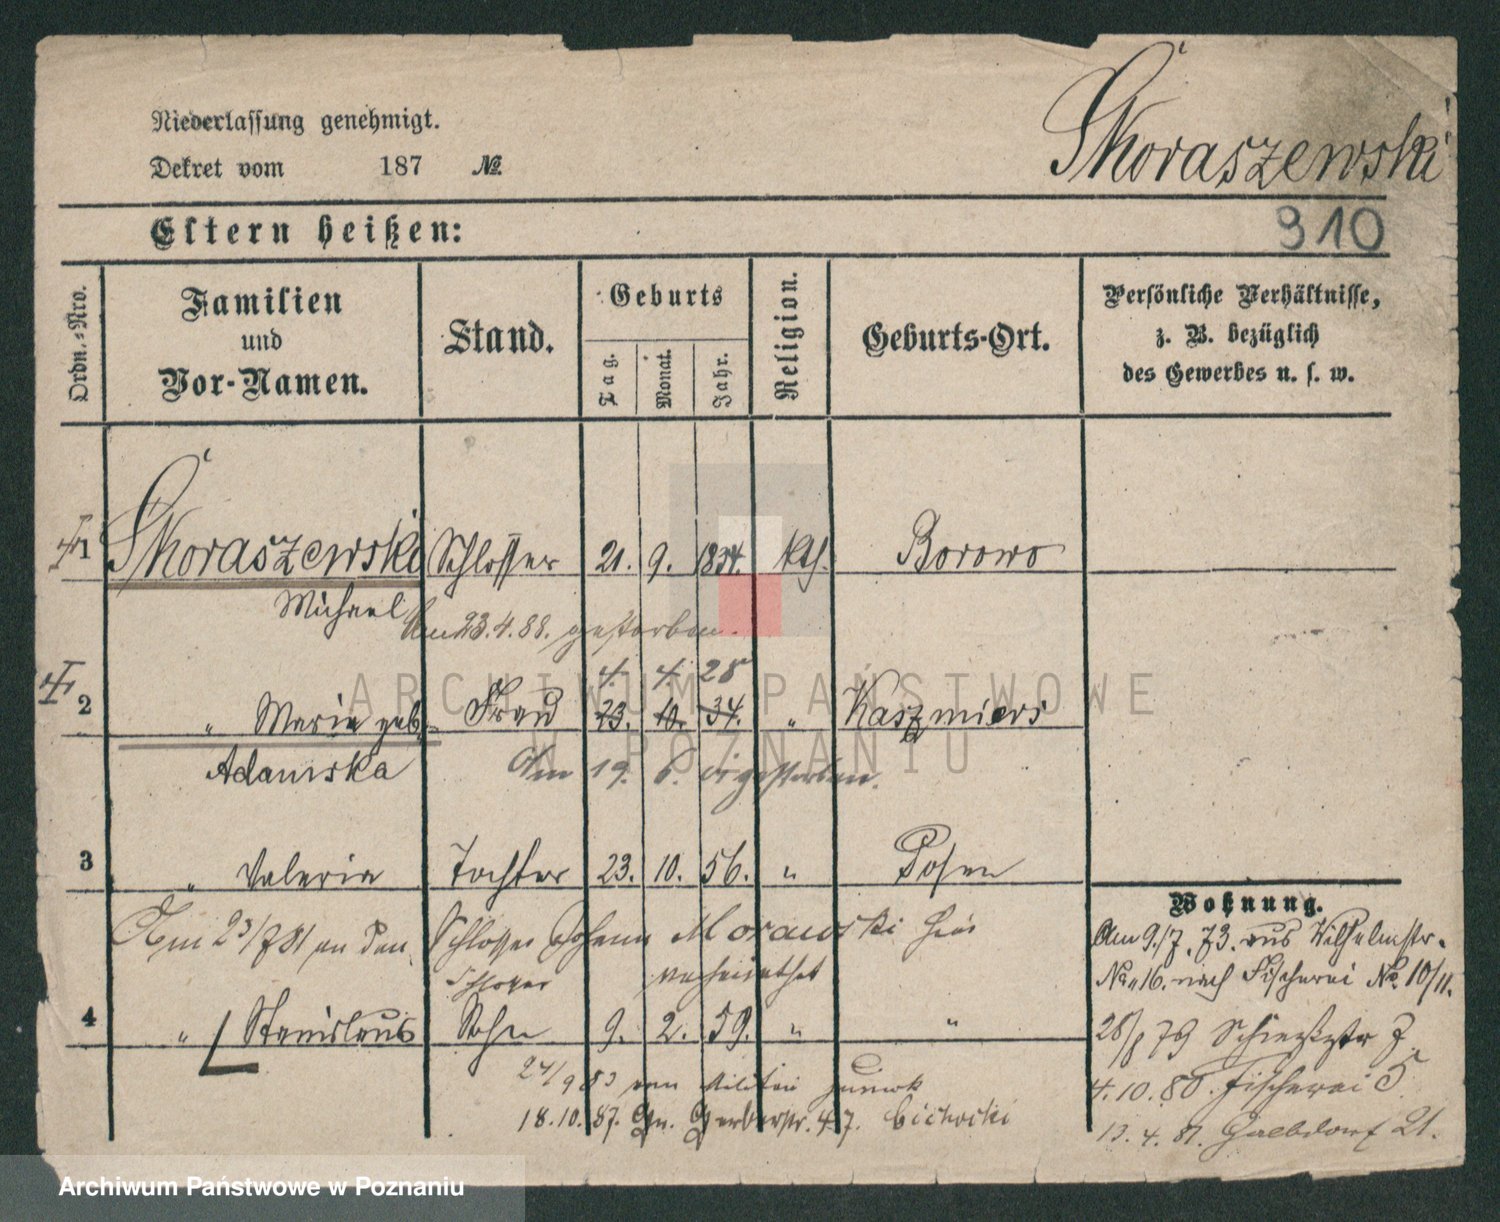 Skoraszewski
Niederlassung genehmigt.
Dekret vom 187 №
Eltern heißen:
910
Ordn.-Nro.
Familien
und
Vor-Namen.
Stand.
Geburts
Tag.
Monat.
Jahr.
Religion.
Geburts-Ort.
Persönliche Verhältnisse,
z. B. bezüglich
des Gewerbes u. s. w.
1 Skoraszewski Schlosser 21. 9. 1834. kth. Borowo
Michael
Am 23.4.88. gestorben.
4. 4. 28
2 " Maria geb. Frau 23. 10. 34. " Kaszmiers
Adamska
Am 19. 6. gestorben.
3 " Valeria Tochter 23. 10. 56. " Posen
Am 23/7 81 an den Schlosser Johann Morawski hier
Schlosser verheirathet
4 " Stanislaus Sohn 9. 2. 59. " "
27/9 83 vom Militär zurück
18.10.87. Gr. Gerberstr. 47. Cichocki
Wohnung.
Am 9./7. 73. aus Wilhelmstr.
No. 16. nach Fischerei No. 10/11.
28/ 79 Schießstr 7.
4.10.80. Fischerei 5
13.4.81. Halbdorf 21.
ARCHIWUM PAŃSTWOWE
W POZNANIU
Archiwum Państwowe w Poznaniu